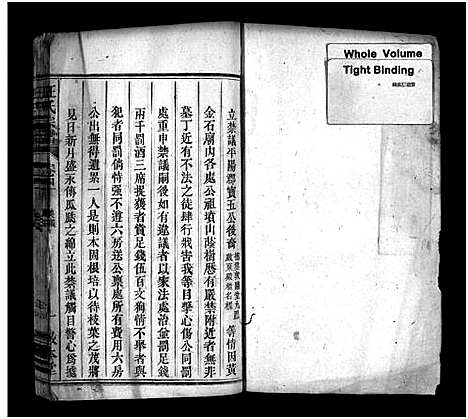 立禁議平陽郡寶五公後裔 等情因黃
金石廟山各處公祖墳山蔭樹歷有嚴禁附近者無非
墓丁近有不法之徒肆行戕害我等目擊心傷公同
處重申禁議嗣後如有違議者以家法處治並罰足錢
兩千罰酒三席捉獲者賞足錢伍百文狥情不舉與
犯者同罰倘恃強不遵六房送公稟處所有費用六房
公出無得遺累一人是則木固根培以待枝葉之茂將
見日新月盛永傳瓜瓞之綿立此禁議觸目警心為據
Whole Volume
Tight Binding